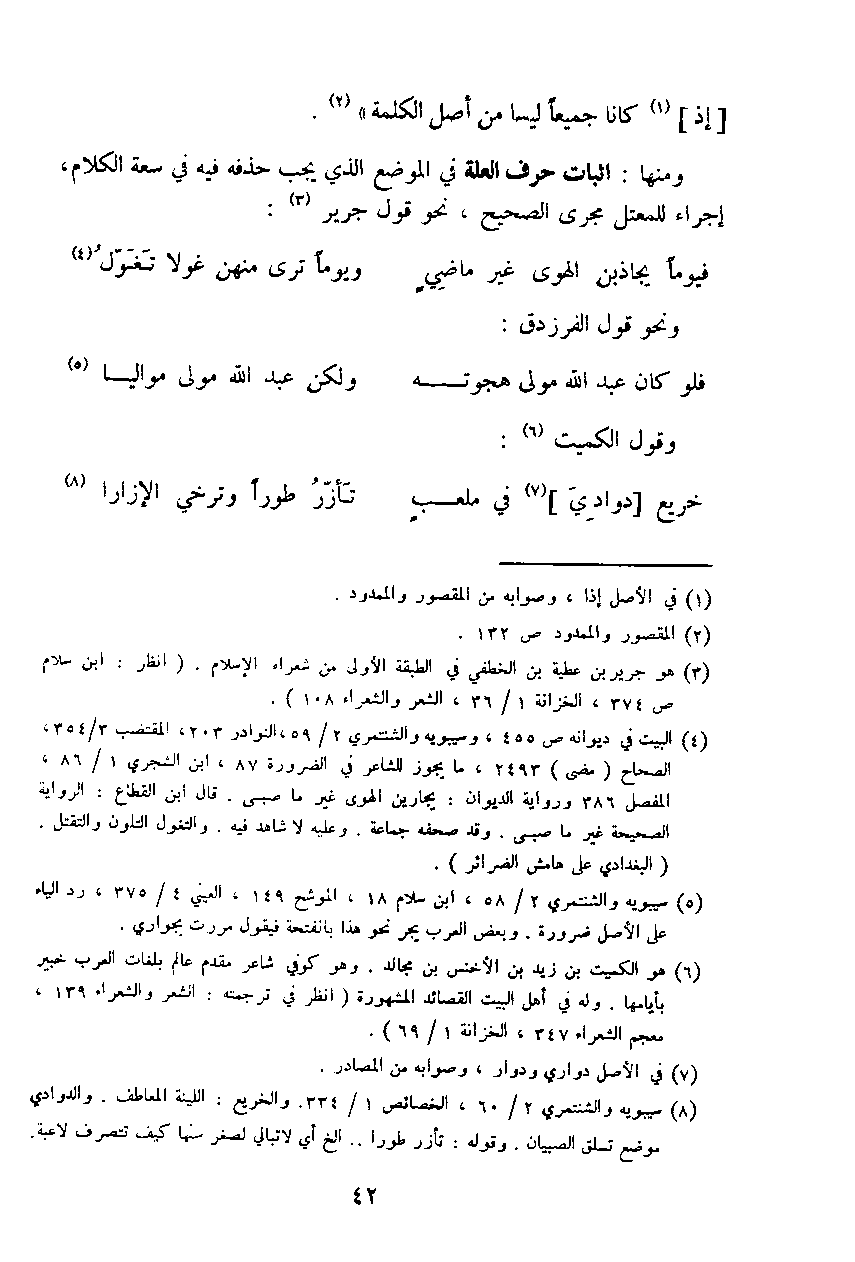 [ إذ ] (١) كانا جميعاً ليسا من أصل الكلمة » (٢) .
ومنها : اثبات حرف العلة في الموضع الذي يجب حذفه فيه في سعة الكلام،
إجراء للمعتل مجرى الصحيح ، نحو قول جرير (٣) :
فيوماً يجاذبن الهوى غير ماضيٍ ويوماً ترى منهن غولا تَغَوّلُ (٤)
ونحو قول الفرزدق :
فلو كان عبد الله مولى هجوتـــه ولكن عبد الله مولى مواليــا (٥)
وقول الكميت (٦) :
خريع [دوادِيَ ] (٧) في ملعـــبٍ تَأزّرُ طوراً وترخي الإزارا (٨)
(١) في الأصل إذا ، وصوابه من المقصور والممدود .
(٢) المقصور والممدود ص ١٣٢ .
(٣) هو جرير بن عطية بن الخطفي في الطبقة الأولى من شعراء الإسلام . ( انظر : ابن سلام
ص ٣٧٤ ، الخزانة ١ / ٣٦ ، الشعر والشعراء ١٠٨ ) .
(٤) البيت في ديوانه ص ٤٥٥ ، وسيبويه والشنتمري ٢ / ٥٩ ،النوادر ٢٠٣، المقتضب ٣/ ٣٥٤،
الصحاح ( مضى ) ٢٤٩٣ ، ما يجوز للشاعر في الضرورة ٨٧ ، ابن الشجري ١ / ٨٦ ،
المفصل ٣٨٦ ورواية الديوان : يجارين الهوى غير ما صبى . قال ابن القطاع : الرواية
الصحيحة غير ما صبى . وقد صحفه جماعة . وعليه لا شاهد فيه . والتغول التلون والتقتل .
( البغدادي على هامش الضرائر ) .
(٥) سيبويه والشنتمري ٢ / ٥٨ ، ابن سلام ١٨ ، الموشح ١٤٩ ، العيني ٤ / ٣٧٥ ، رد الياء
على الأصل ضرورة . وبعض العرب يجر نحو هذا بالفتحة فيقول مررت بجواري .
(٦) هو الكميت بن زيد بن الأخنس بن مجالد . وهو كوفي شاعر مقدم عالم بلغات العرب خبير
بأيامها . وله في أهل البيت القصائد المشهورة ( انظر في ترجمته : الشعر والشعراء ١٣٩ ،
معجم الشعراء ٣٤٧ ، الخزانة ١ / ٦٩ ) .
(٧) في الأصل دواري ودوار ، وصوابه من المصادر .
(٨) سيبويه والشنتمري ٢ / ٦٠ ، الخصائص ١ / ٣٣٤. والخريع : اللينة المعاطف . والدوادي
موضع تسلق الصبيان . وقوله : تأزر طورا .. الخ أي لاتبالي لصغر سنها كيف تتصرف لاعبة.
٤٢